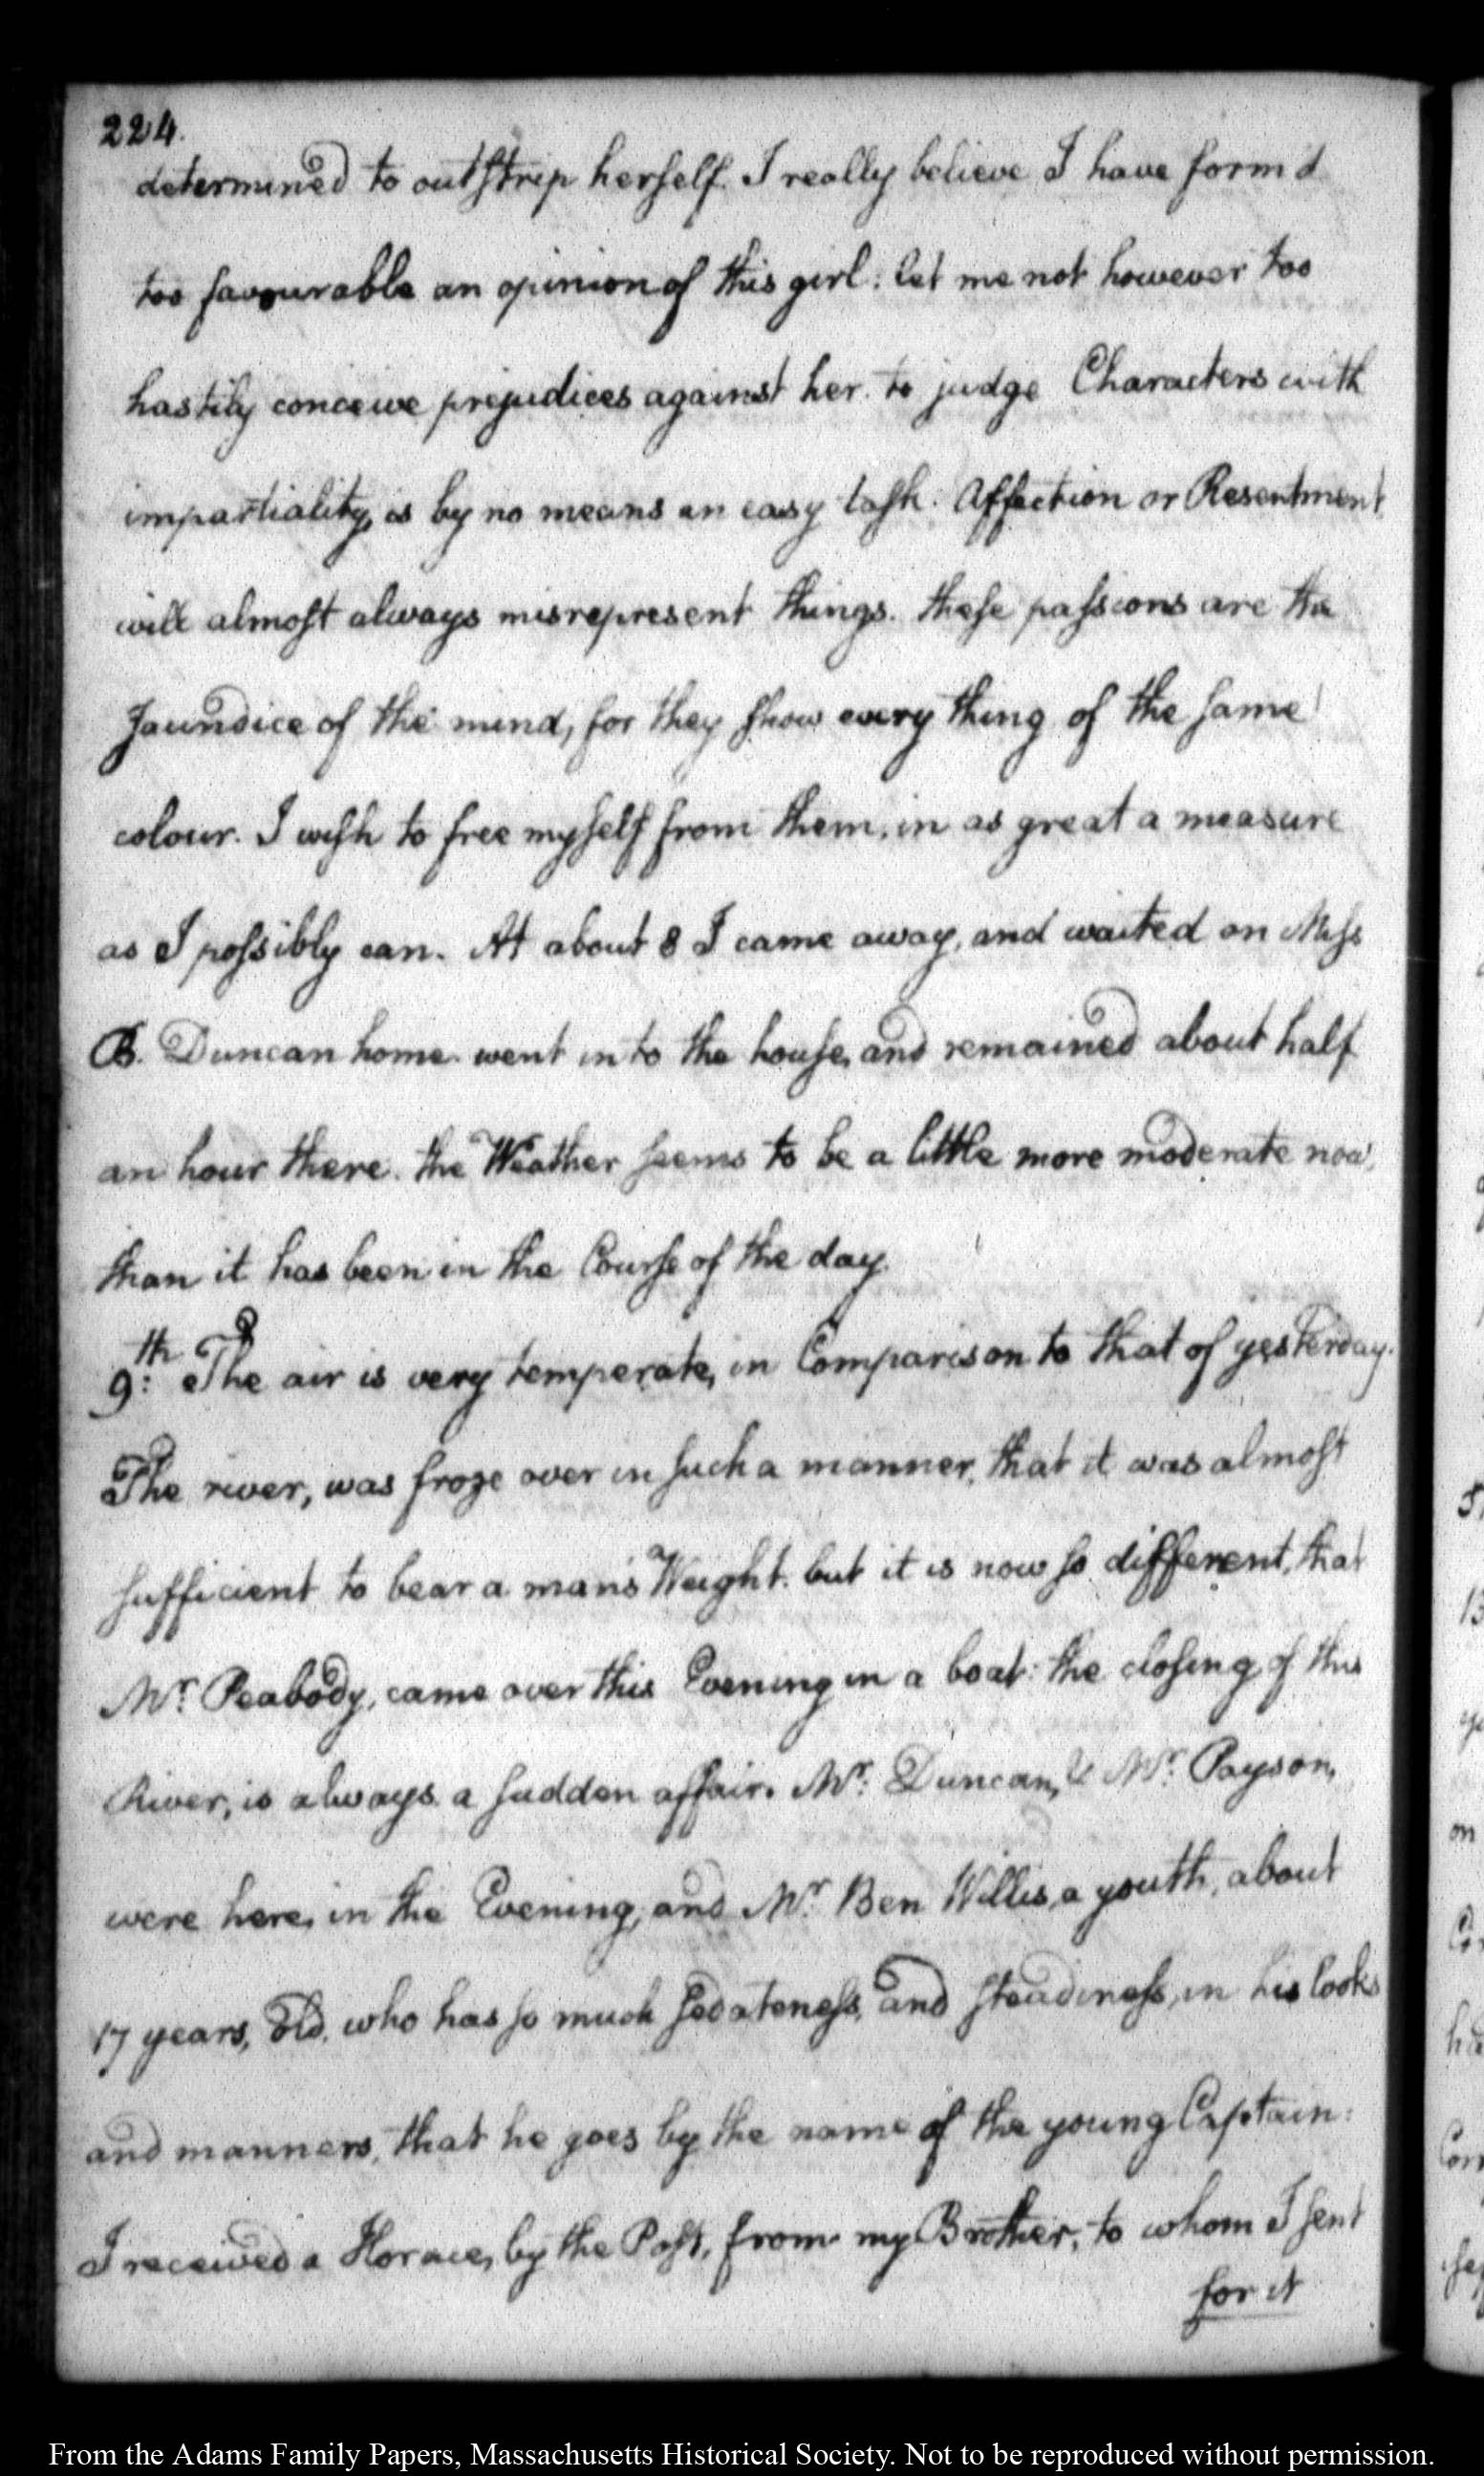 224.
determined to outstrip herself. I really believe I have form'd
too favourable an opinion of this girl: let me not however too
hastily conceive prejudices against her. to judge Characters with
impartiality, is by no means an easy task. Affection or Resentment,
will almost always misrepresent things. these passions are the
Jaundice of the mind, for they show every thing of the same
colour. I wish to free myself from them, in as great a measure
as I possibly can. At about 8 I came away, and waited on Miss
B. Duncan home. went into the house, and remained about half
an hour there. the Weather seems to be a little more moderate now,
than it has been in the Course of the day.
9th: The air is very temperate, in Comparison to that of yesterday.
The river, was froze over in such a manner, that it was almost
sufficient to bear a man's Weight. but it is now so different, that
Mr. Peabody, came over this Evening in a boat: the closing of this
River, is always a sudden affair. Mr: Duncan, & Mr: Payson,
were here, in the Evening, and Mr. Ben Willis, a youth, about
17 years, old, who has so much sedateness, and steadiness, in his looks
and manners, that he goes by the name of the young Captain:
I received a Horace, by the Post, from my Brother, to whom I sent
for it
From the Adams Family Papers, Massachusetts Historical Society. Not to be reproduced without permission.